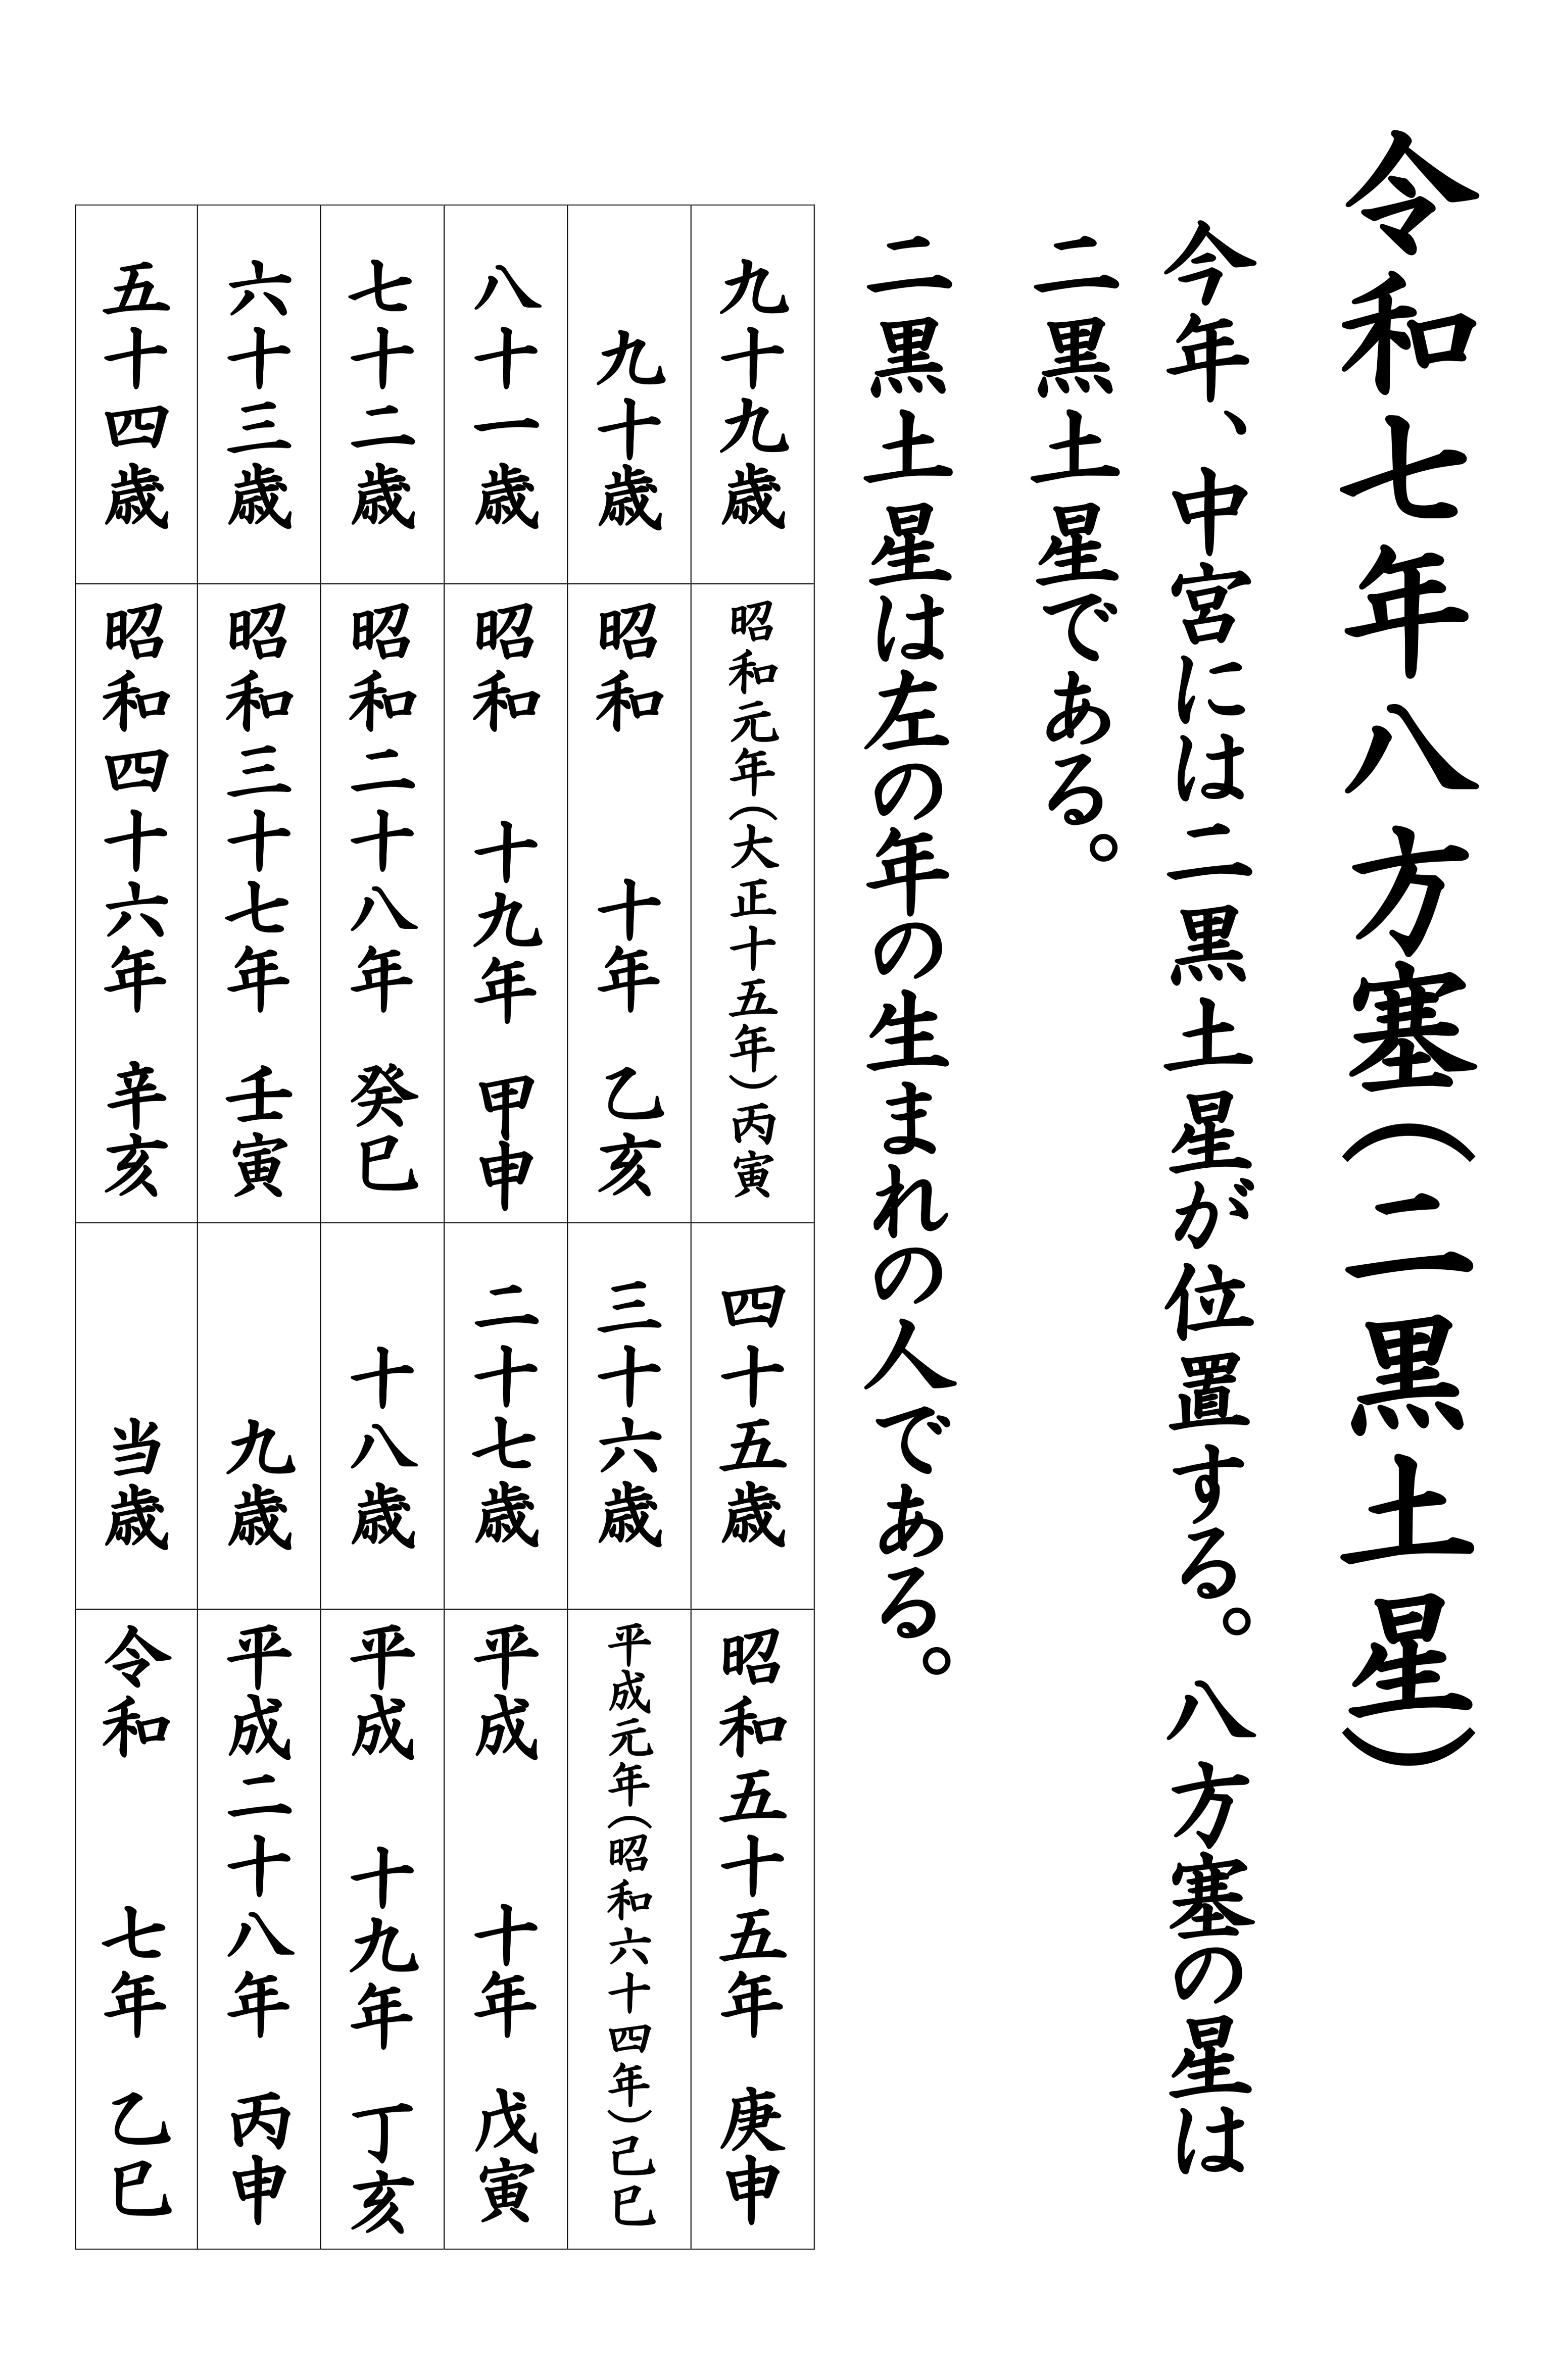 令和七年八方塞（二黒土星）
今年、中宮には二黒土星が位置する。八方塞の星は
二黒土星である。
二黒土星は左の年の生まれの人である。
九十九歳 昭和元年（大正十五年）丙寅 四十五歳 昭和五十五年 庚申
九十歳 昭和 十年 乙亥 三十六歳 平成元年（昭和六十四年）己巳
八十一歳 昭和 十九年 甲申 二十七歳 平成 十年 戊寅
七十二歳 昭和二十八年 癸巳 十八歳 平成 十九年 丁亥
六十三歳 昭和三十七年 壬寅 九歳 平成二十八年 丙申
五十四歳 昭和四十六年 辛亥 当歳 令和 七年 乙巳